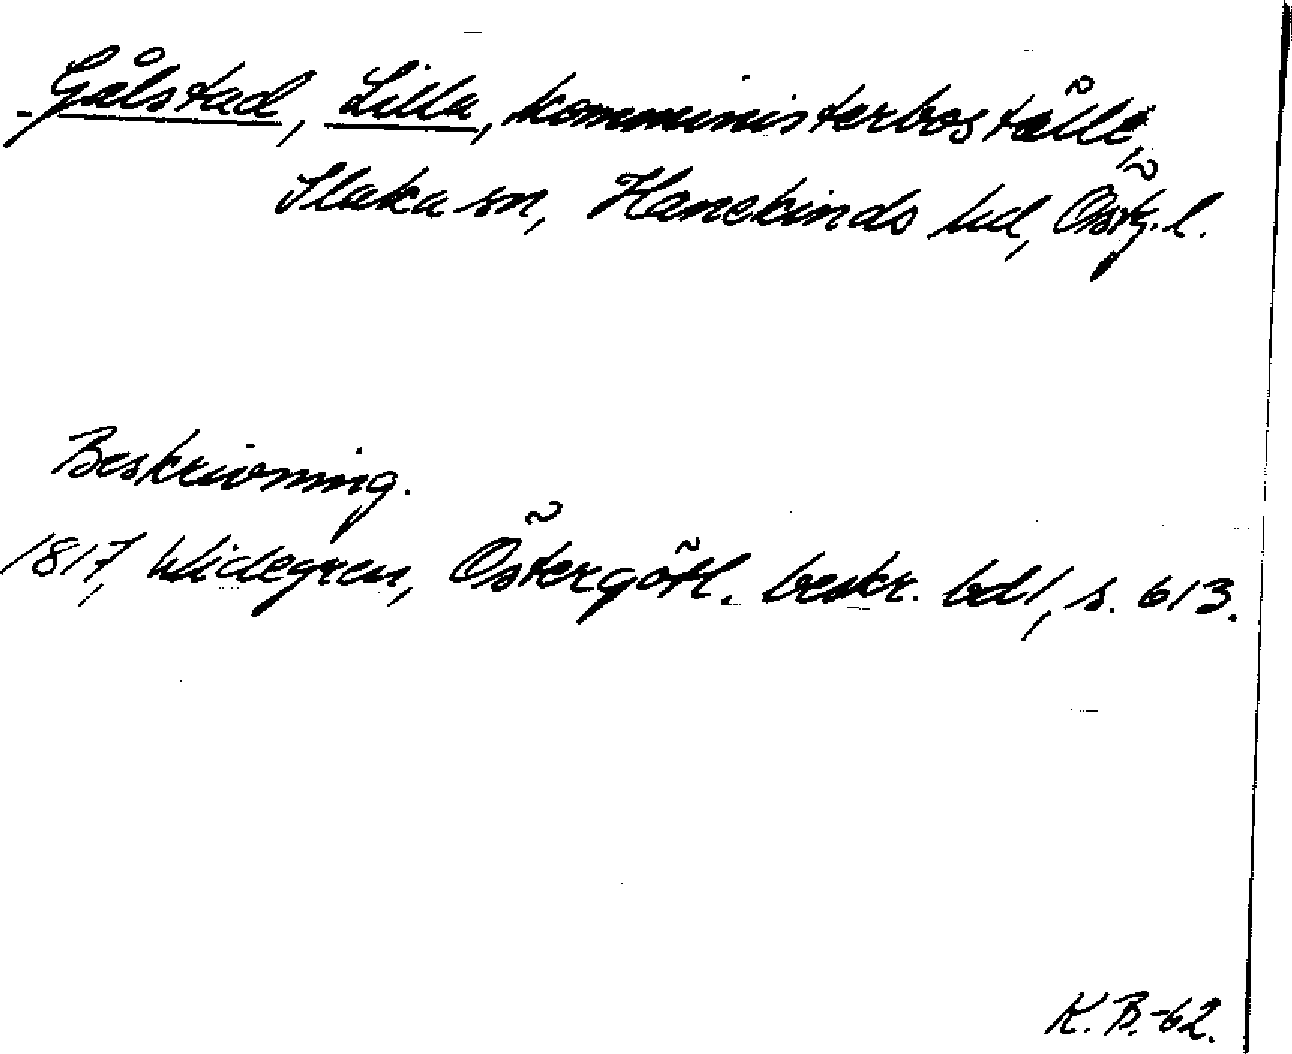 Gålstad, Lilla, komministerboställe,
Slaka sn, Hanekinds hd, Östg. l.
Beskrivning.
1817, Widegren, Östergötl. beskr. bd 1, s. 613.
K. B. -62.